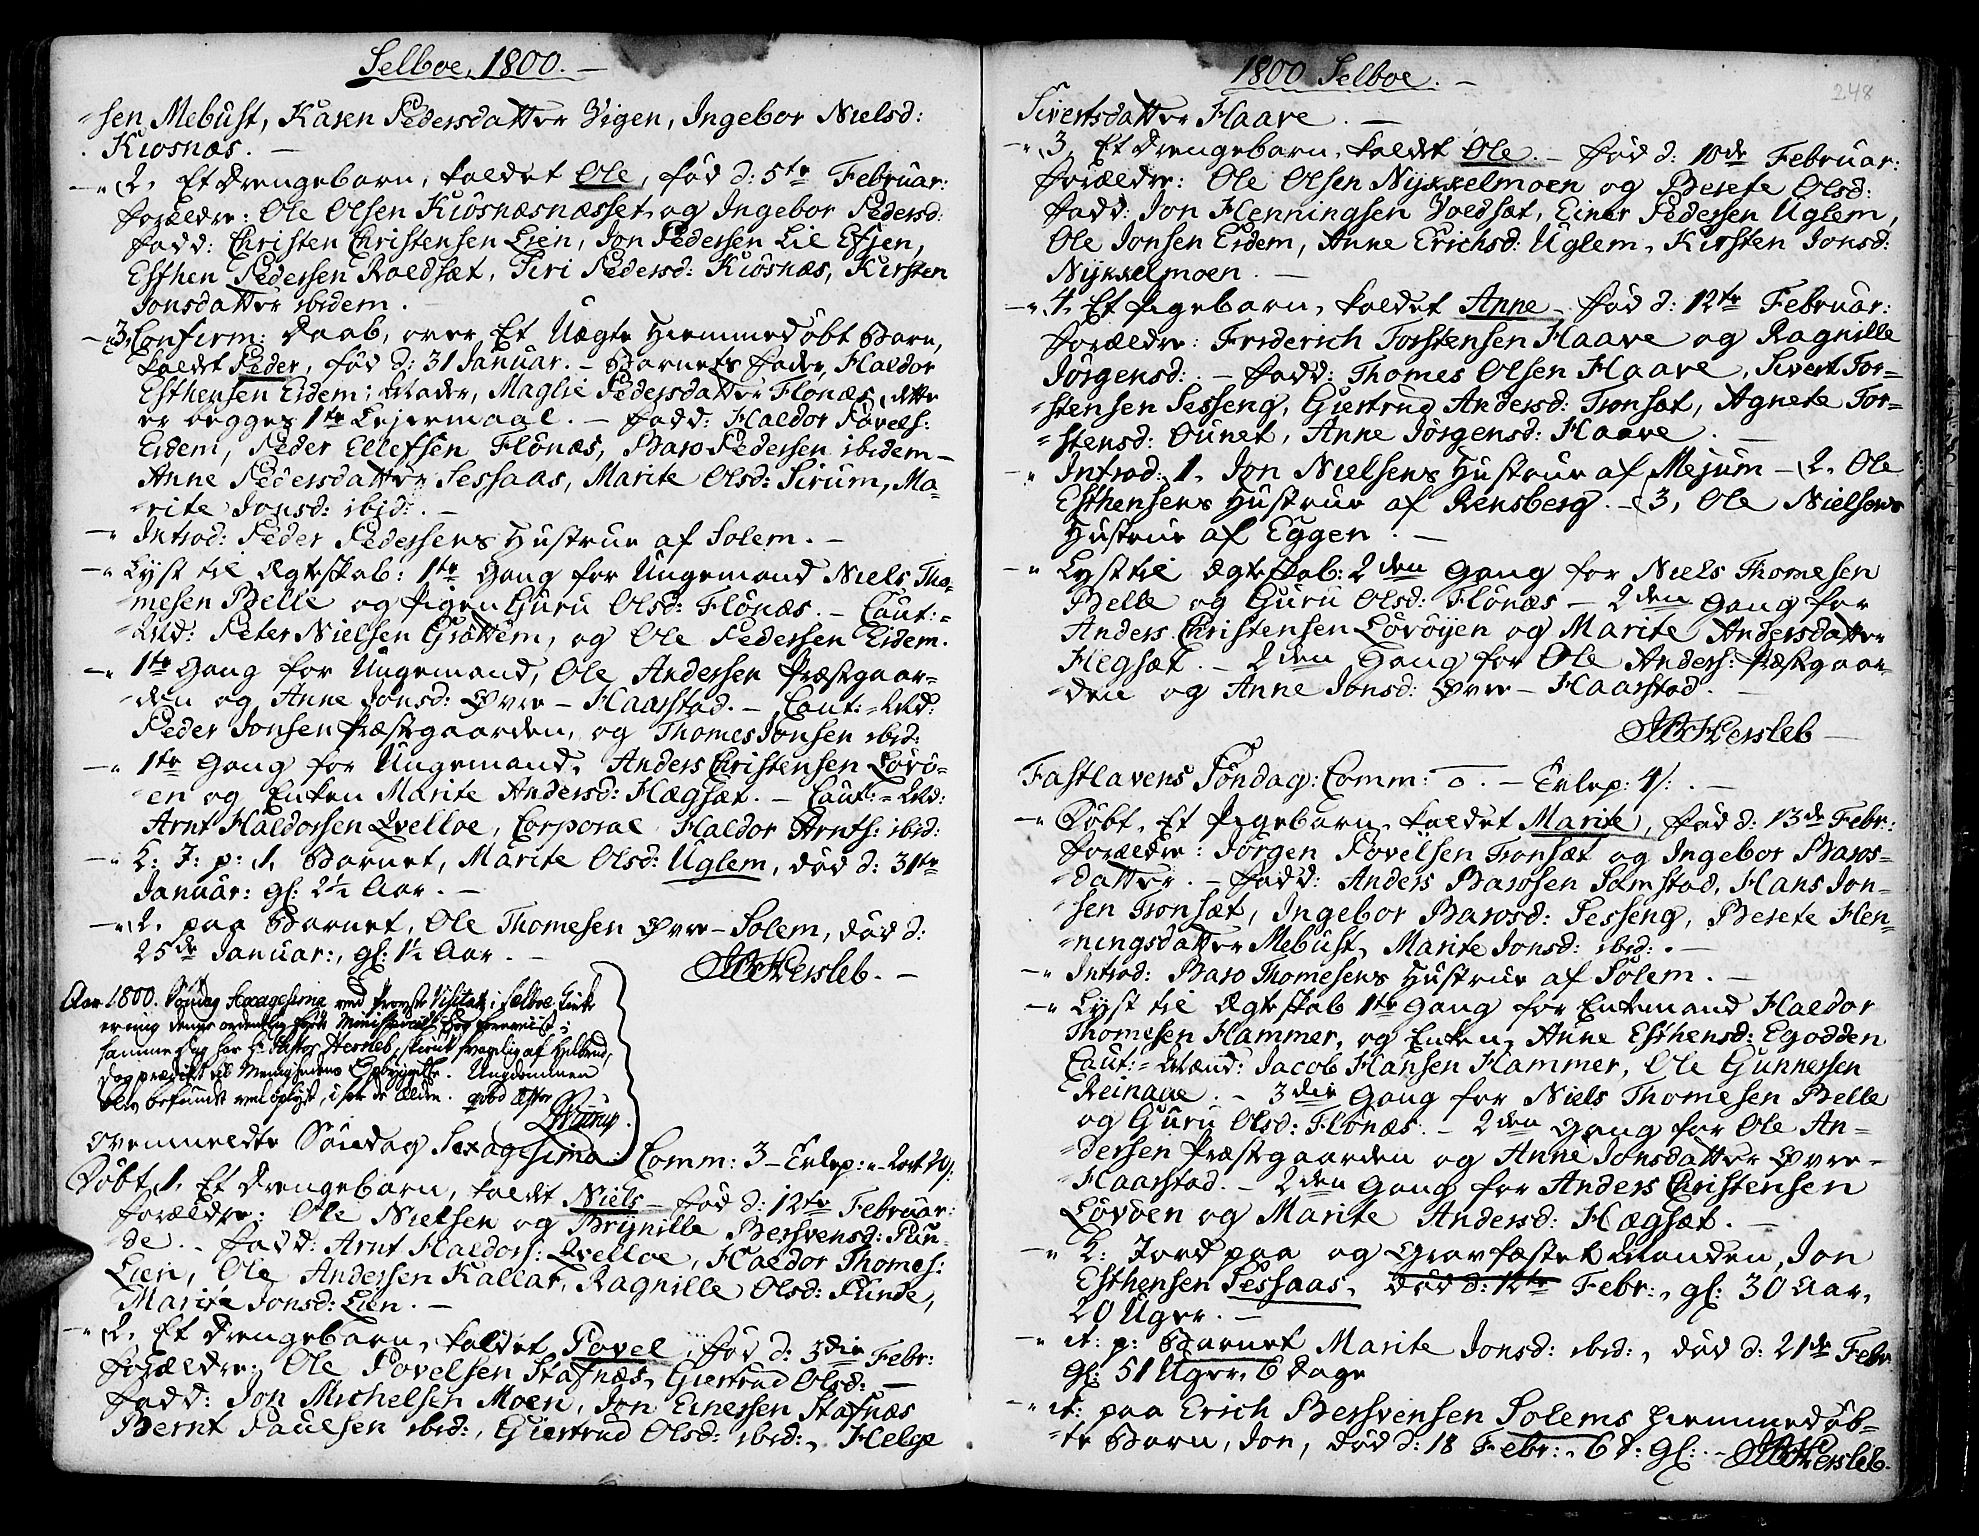 Selboe, 1800. -
sen Mebust, Karen Pedersdatter Vigen, Ingebor Nielsd:
Kiosnæs. -
-" 2, Et Drengebarn, kaldet Ole, fød d: 5te Februar:
Forældre: Ole Olsen Kiosnæsnæsset og Ingebor Pedersd:
Fadd: Christen Christensen Lien, Jon Pedersen Lie Efjen,
Esthen Pedersen Roldsæt, Siri Pedersd: Kiosnæs, Kirsten
Jonsdatter ibidem. -
-" 3, Confirm: Daab, over Et Uægte Hiemmedøbt Barn,
kaldet Peder, fød d: 31 Januar. - Barnets Fader, Haldor
Esthensen Eidem; Moder, Maglie Pedersdatter Flonæs, dette
er begges 1te Leiermaal. - Fadd: Haldor Povels:
Eidem, Peder Ellefsen Flönæs, Baro Pedersen ibidem -
Anne Pedersdatter Sessaas, Marite Olsd: Sirum, Ma-
-rite Jonsd: ibid: -
-" Introd: Peder Pedersens Hustrue af Solem. -
-" Lyst til Ægteskab: 1te Gang for Ungemand Niels Tho-
mesen Belle og Pigen Guru Olsd: Flönæs. - Caut:-
Md: Peter Nielsen Grøttem, og Ole Pedersen Eidem.
-" 1te Gang for Ungemand, Ole Andersen Præstgaar-
den og Anne Jonsd: Øvre - Haarstad. - Caut:-Md:
Peder Jonsen Præstgaarden, og Thomes Jonsen ibid:
-" 1te Gang for Ungemand, Anders Christensen Lövö-
en og Enken Marite Andersd: Hægsæt. - Caut:-Md:
Arnt Haldorsen Qvelloe, Corporal Haldor Arnts: ibid:
-" K: J: p: 1, Barnet, Marite Olsd: Uglem, død d: 31te
Januar: gl: 2½ Aar. -
-" 2, paa Barnet, Ole Thomesen Øvre-Solem, død d:
25de Januar:, gl: 1½ Aar. -
Hersleb. -
Aar 1800. Søndag Sexagesima ved Provste Visitatz i Sælboe Kirke
er mig denne ordentlig førte Ministerial Bog foreviist;
samme Dag har Hr Pastor Hersleb, skiønt svagelig af Helbred,
Dog prædiket til Menighedens Opbyggelse. Ungdommen
blev befundet vel oplyst, i sær de Ældre.
ovenmeldte Søndag Sexagesima: Comm: 3 -
Døbt, 1, Et Drengebarn, kaldet Niels - fød d: 12te Februar:
Forældre: Ole Nielsen og Brynille Bersvensd: Pun-
de. - Fadd: Arnt Haldors: Qvelloe, Haldor Thomes:
Lien, Ole Andersen Kallar, Ragnille Olsd: Punde,
Marite Jonsd: Lien. -
-" 2, Et Drengebarn, kaldet Povel, fød d: 3die Febr:
Forældre: Ole Povelsen Stafnæs, Giertrud Olsd: -
Fadd: Jon Michelsen Moen, Jon Einersen Stafnæs
Bernt Paulsen ibid:, Giertrud Olsd: ibid:, Helge
1800 Selboe. -
248
Sivertsdatter Haave. -
-" 3, Et Drengebarn, kaldet Ole. - fød d: 10de Februar:
Forældre: Ole Olsen Nykkelmoen og Berete Olsd:
Fadd: Jon Henningsen Voldsæt, Einer Pedersen Uglem,
Ole Jonsen Eidem, Anne Erichsd: Uglem, Kirsten Jonsd:
Nykkelmoen. -
-" 4, Et Pigebarn, kaldet Anne - fød d: 12te Februar:
Forældre: Friderich Torstensen Haave og Ragnille
Jörgensd: - Fadd: Thomes Olsen Haave, Sivert Tor-
stensen Sesseng, Giertrud Andersd: Tronsæt, Agnete Tor-
stensd: Ounet, Anne Jörgensd: Haave. -
-" Introd: 1, Jon Nielsens Hustrue af Mejum - 2, Ole
Esthensens Hustrue af Rensberg. - 3, Ole Nielsens
Hustrue af Eggen. -
-" Lyst til Ægteskab: 2den Gang for Niels Thomesen
Belle og Guru Olsd: Flönæs - 2den Gang for
Anders Christensen Lövöyen og Marite Andersdatter
Hegsæt. - 2den Gang for Ole Anders: Præstgaar-
den og Anne Jonsd: Øvre - Haarstad. -
Hersleb -
Fastlavens Söndag: Comm: o. -
-" Døbt, Et Pigebarn, kaldet Marite, fød d: 13de Febr:
Forældre: Jörgen Povelsen Tronsæt og Ingebor Baros-
datter. - Fadd: Anders Barosen Samstad, Hans Jon-
sen Tronsæt, Ingebor Barosd: Sesseng, Berete Hen-
ningsdatter Mebust, Marite Jonsd: ibid: -
-" Introd: Baro Thomesens Hustrue af Solem. -
-" Lyst til Ægteskab 1te Gang for Enkemand Haldor
Thomesen Hammer, og Enken, Anne Esthensd: Egodden
Caut:-Mænd: Jacob Hansen Hammer, Ole Gunnersen
Reinaae. - 3die Gang for Niels Thomesen Belle
og Guru Olsd: Flönæs. - 2den Gang for Ole An-
dersen Præstgaarden og Anne Jonsdatter Øvre-
Haarstad. - 2den Gang for Anders Christensen
Lövöen og Marite Andersd: Hægsæt. -
-" K: Jord paa og Gravfæstet Manden, Jon
Esthensen Sessaas, Død d: 12te Febr:, gl: 30 Aar,
20 Uger. -
-" it: p: Barnet Marite Jonsd: ibid:, død d: 21de Febr
gl: 51 Uger, 6 Dage
-" it: paa Erich Bersvensen Solems hiemmedøb-
te Barn, Jon, død d: 18 Febr:, 6 D: gl: - Hersleb.